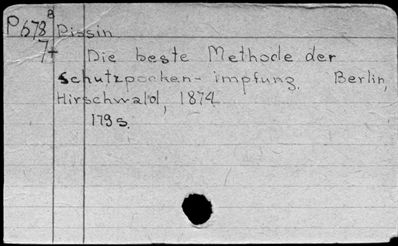 P678 B Pissin
7+ Die beste Methode der
Schutzpocken-impfung. Berlin,
Hirschwald, 1874.
179 s.